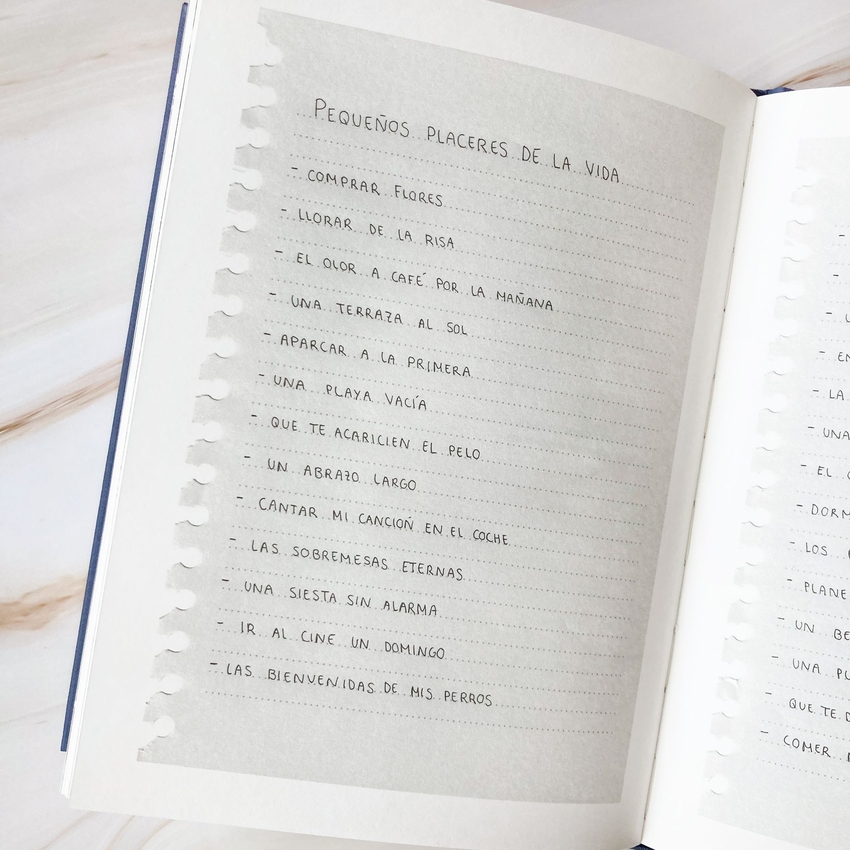 PEQUEÑOS PLACERES DE LA VIDA
- COMPRAR FLORES
- LLORAR DE LA RISA
- EL OLOR A CAFÉ POR LA MAÑANA
- UNA TERRAZA AL SOL
- APARCAR A LA PRIMERA
- UNA PLAYA VACÍA
- QUE TE ACARICIEN EL PELO
- UN ABRAZO LARGO
- CANTAR MI CANCIOÑ EN EL COCHE
- LAS SOBREMESAS ETERNAS
- UNA SIESTA SIN ALARMA
- IR AL CINE UN DOMINGO
- LAS BIENVENIDAS DE MIS PERROS
-
-
-
- EN
- LA
- UNA
- EL
-
- LOS
-
- UN
- UNA
- QUE TE
- COMER